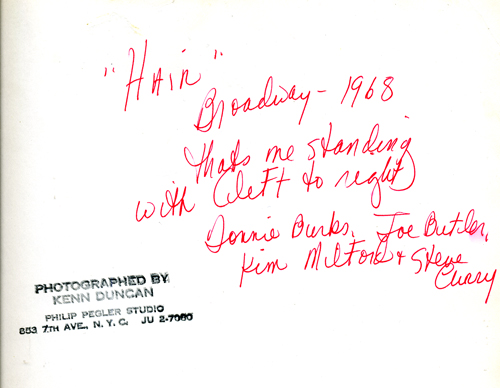 "HAIR"
Broadway - 1968
thats me standing
with (left to right)
Donnie Burks, Joe Butler,
Kim Milford & Steve
Curry
PHOTOGRAPHED BY
KENN DUNCAN
PHILIP PEGLER STUDIO
853 7TH AVE., N. Y. C. JU 2-7080